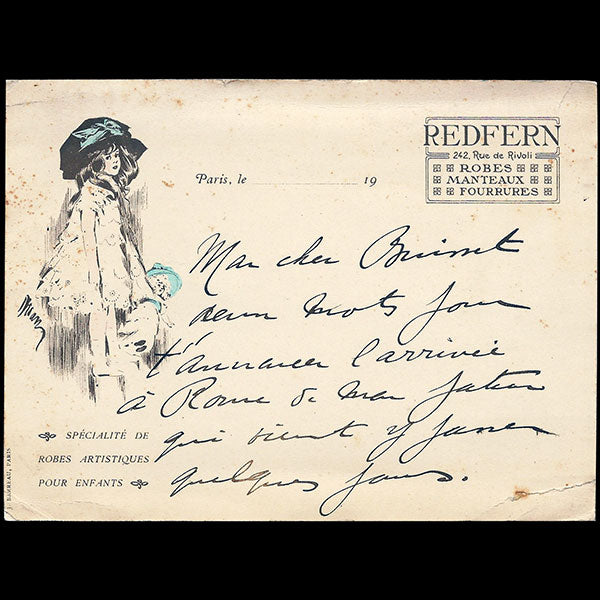 REDFERN
242, Rue de Rivoli
ROBES
MANTEAUX
FOURRURES
Paris, le 19
Mon cher
deux mots pour
t'annoncer l'arrivée
à Rome de mon
qui vient y passer
quelques jours.
SPÉCIALITÉ DE
ROBES ARTISTIQUES
POUR ENFANTS
PARIS